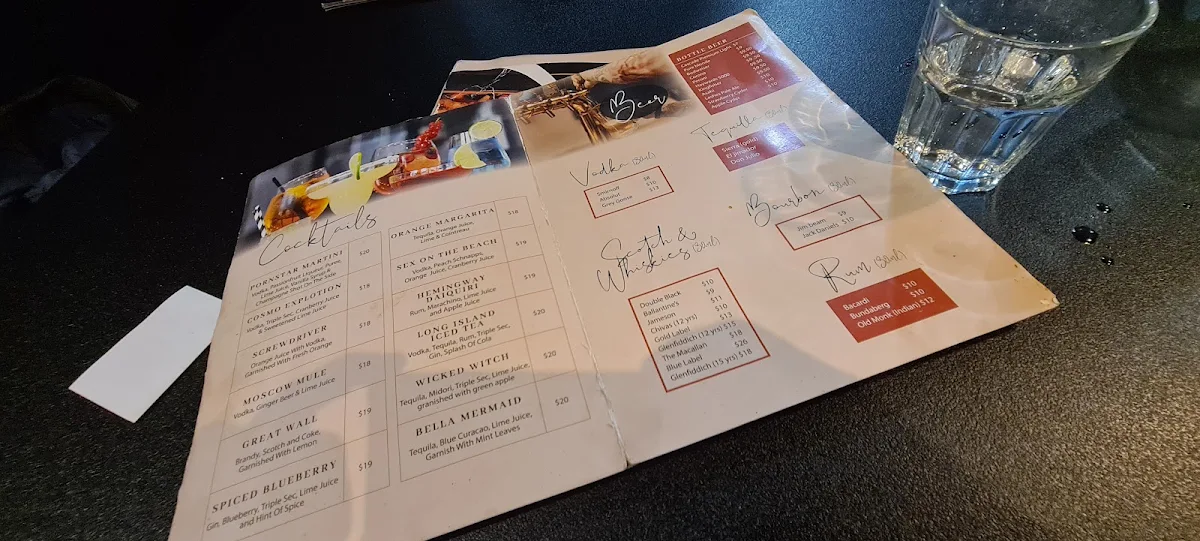 Cocktails
PORNSTAR MARTINI $20
Vodka, Passionfruit Liqueur, Puree,
Lime Juice, Vanilla Syrup &
Champagne Shot On The Side
COSMO EXPLOTION $18
Vodka, Triple Sec, Cranberry Juice
& Sweetened Lime Juice
SCREWDRIVER $18
Orange Juice With Vodka,
Garnished With Fresh Orange
MOSCOW MULE $18
Vodka, Ginger Beer & Lime Juice
GREAT WALL $19
Brandy, Scotch and Coke,
Garnished With Lemon
SPICED BLUEBERRY $19
Gin, Blueberry, Triple Sec, Lime Juice
and Hint Of Spice
ORANGE MARGARITA $18
Tequila, Orange Juice,
Lime & Cointreau
SEX ON THE BEACH $19
Vodka, Peach Schnapps,
Orange Juice, Cranberry Juice
HEMINGWAY
DAIQUIRI $19
Rum, Marachino, Lime Juice
and Apple Juice
LONG ISLAND
ICED TEA $20
Vodka, Tequila, Rum, Triple Sec,
Gin, Splash Of Cola
WICKED WITCH $20
Tequila, Midori, Triple Sec, Lime Juice,
granished with green apple
BELLA MERMAID $20
Tequila, Blue Curacao, Lime Juice,
Garnish With Mint Leaves
Beer
BOTTLE BEER
Cascade Premium Light
Corona
Kingfisher
Strawberry Cyder
Apple Cyder
Vodka
Smirnoff $8
Absolut $10
Grey Goose $12
Tequilla
Sierra (gold)
El Jimador
Don Julio
Scotch &
Whiskies
Double Black $10
Ballantine's $9
Jameson $11
Chivas (12 yrs) $10
Gold Label $13
Glenfiddich (12 yrs) $15
The Macallan $18
Blue Label $26
Glenfiddich (15 yrs) $18
Bourbon
Jim beam $9
Jack Daniels $10
Rum
Bacardi $10
Bundaberg $10
Old Monk (Indian) $12